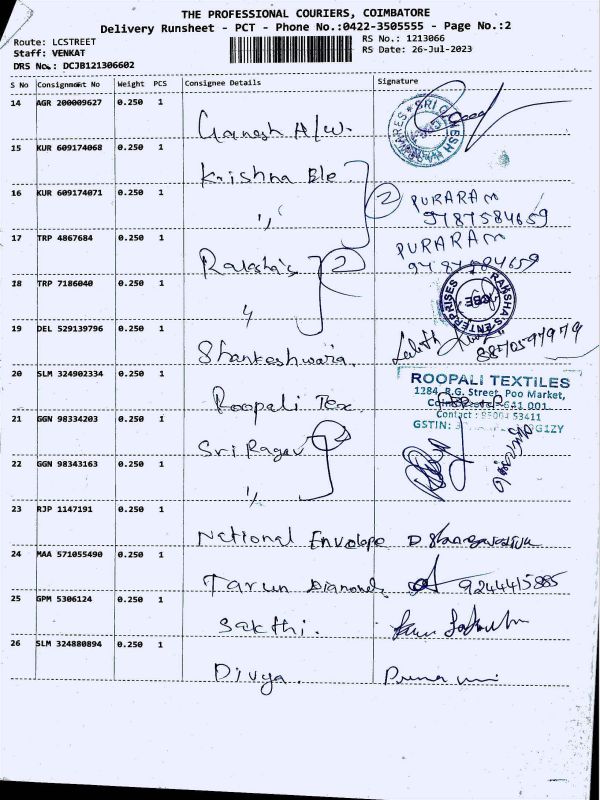 THE PROFESSIONAL COURIERS, COIMBATORE
Delivery Runsheet - PCT - Phone No.:0422-3505555 - Page No.:2
Route: LCSTREET
RS No.: 1213066
Staff: VENKAT
RS Date: 26-Jul-2023
DRS No.: DCJB121306602
S No Consignment No Weight PCS Consignee Details Signature
14 AGR 200009627 0.250 1 Ganesh H/W.
15 KUR 609174068 0.250 1 Krishna Ele
16 KUR 609174071 0.250 1 " 2 PURARAM
9787584659
17 TRP 4867684 0.250 1 Raksha's 2 PURARAM
9787584659
18 TRP 7186040 0.250 1 "
RAKSHA'S ENTERPRISES
CBE
19 DEL 529139796 0.250 1 Shankeshwara. Lalith
8870597979
20 SLM 324902334 0.250 1 Roopali Tex
ROOPALI TEXTILES
1284, R.G. Street, Poo Market,
641 001
Contact : 53411
GSTIN: G1ZY
21 GGN 98334203 0.250 1 Sri Ragav 2
22 GGN 98343163 0.250 1 "
23 RJP 1147191 0.250 1 National Envelope D
24 MAA 571055490 0.250 1 Tarun Diamonds 9244415885
25 GPM 5306124 0.250 1 Sakthi.
26 SLM 324880894 0.250 1 Divya.